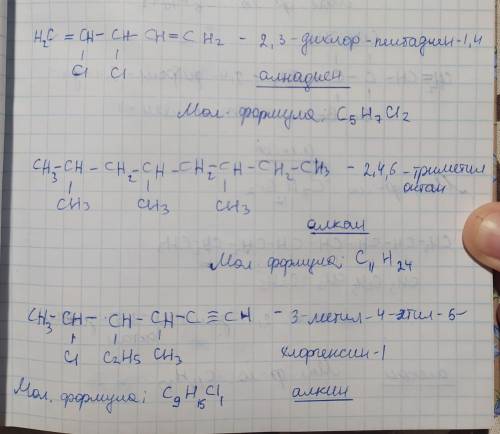 H₂C = CH – CH – CH = CH₂ – 2,3-дихлор-пентадиен-1,4
Cl Cl
алкадиен
Мол формула: C₅H₇Cl₂
CH₃ – CH – CH₂ – CH – CH₂ – CH – CH₂ – CH₃ – 2,4,6-триметил
CH₃ CH₃ CH₃ октан
алкан
Мол формула; C₁₁H₂₄
CH₃ – CH – CH – CH – C ≡ CH – 3-метил-4-этил-5-
Cl C₂H₅ CH₃ хлоргексин-1
Мол. формула; C₉H₁₅Cl₁ алкин